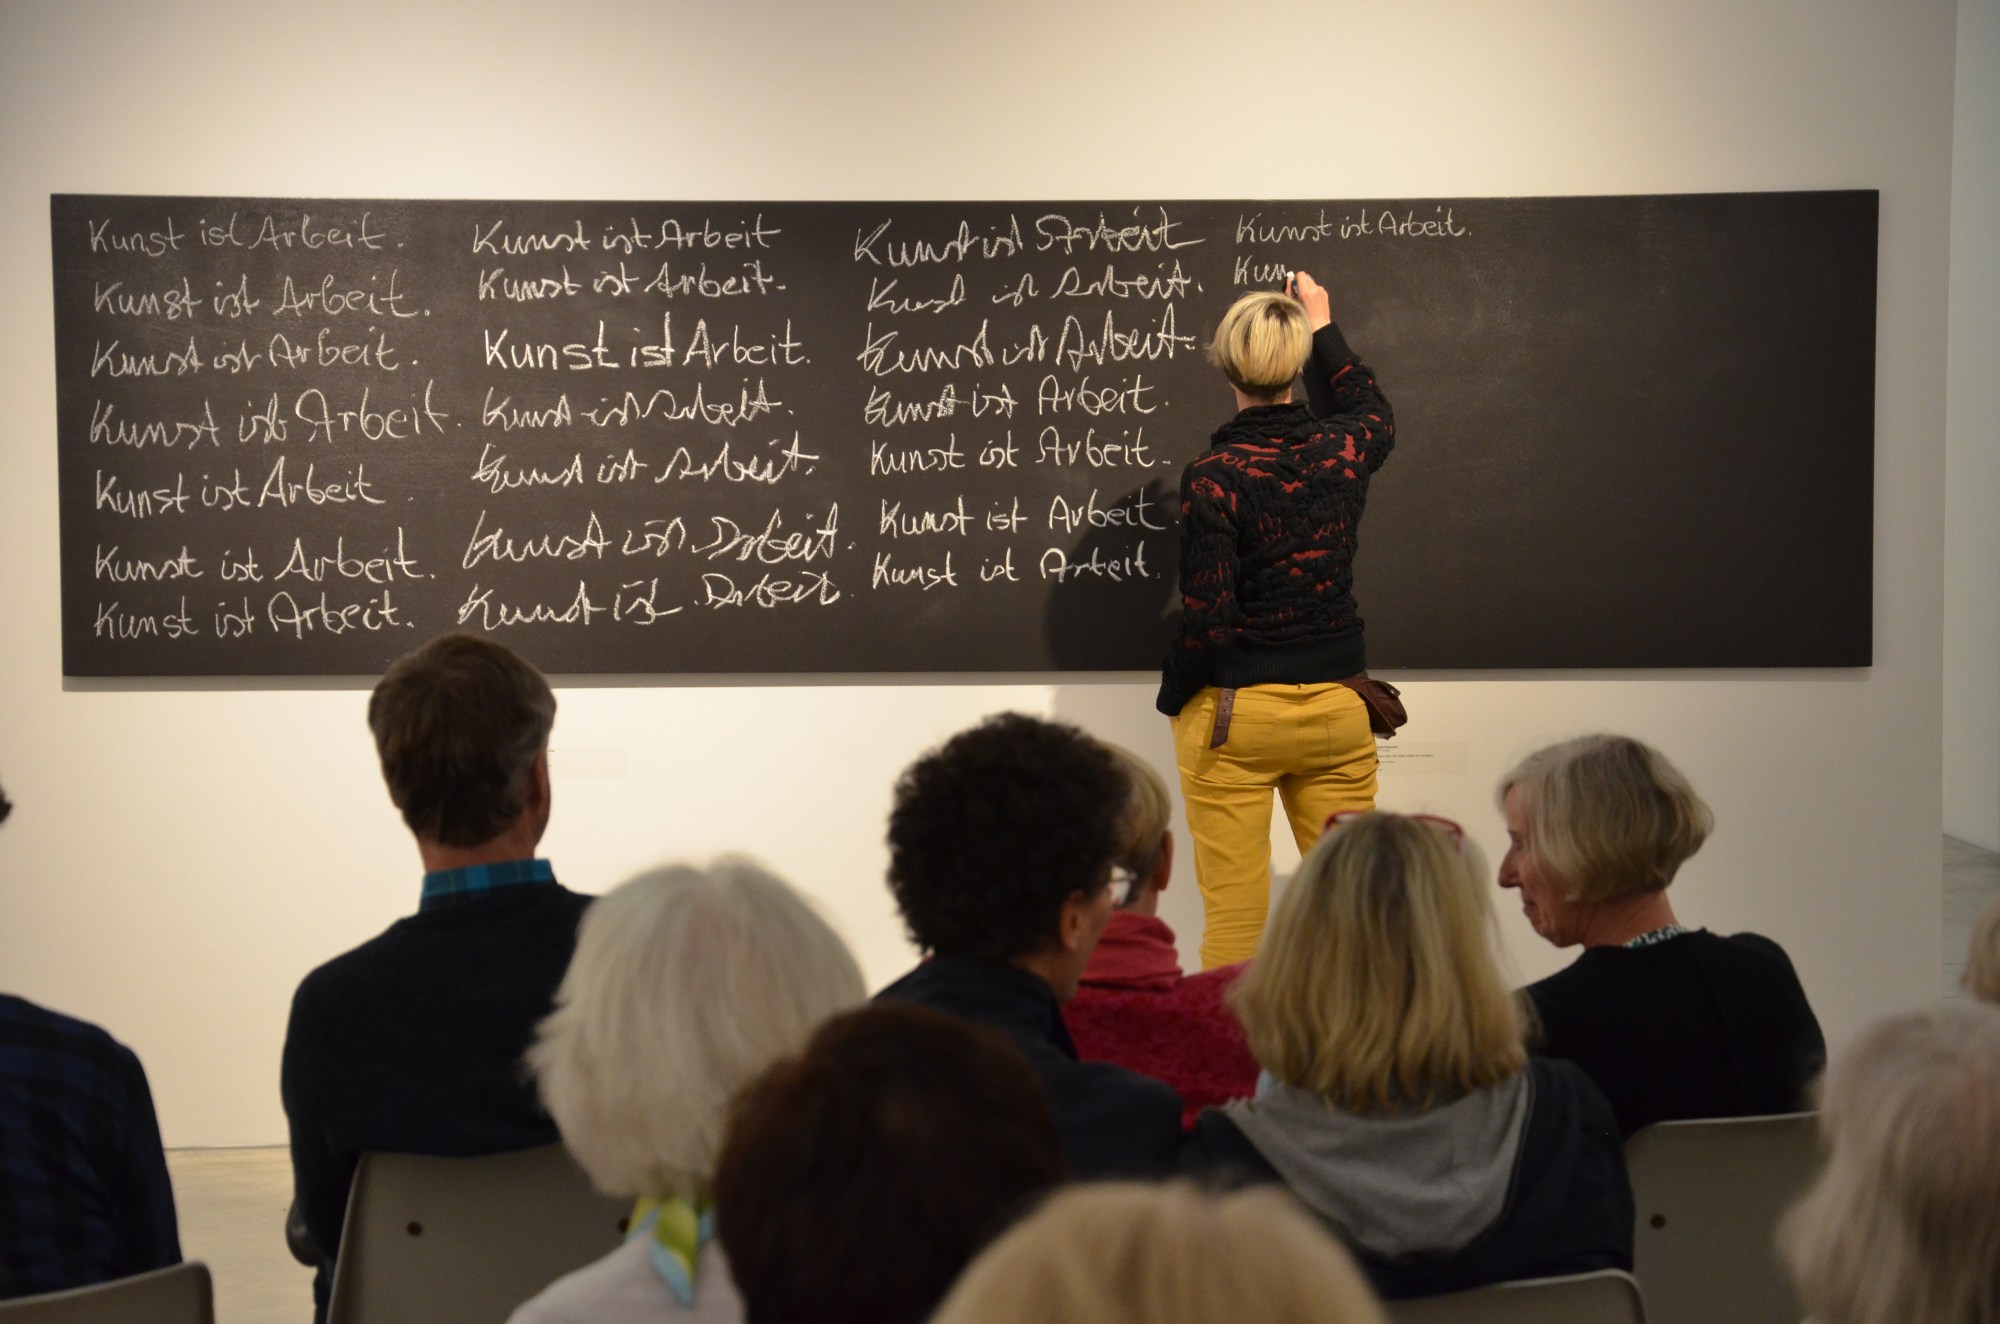 Kunst ist Arbeit.
Kunst ist Arbeit.
Kunst ist Arbeit.
Kunst ist Arbeit.
Kunst ist Arbeit.
Kunst ist Arbeit.
Kunst ist Arbeit.
Kunst ist Arbeit
Kunst ist Arbeit.
Kunst ist Arbeit.
Kunst ist Arbeit.
Kunst ist Arbeit.
Kunst ist Arbeit.
Kunst ist Arbeit.
Kunst ist Arbeit
Kunst ist Arbeit.
Kunst ist Arbeit.
Kunst ist Arbeit.
Kunst ist Arbeit.
Kunst ist Arbeit.
Kunst ist Arbeit.
Kunst ist Arbeit.
Kun